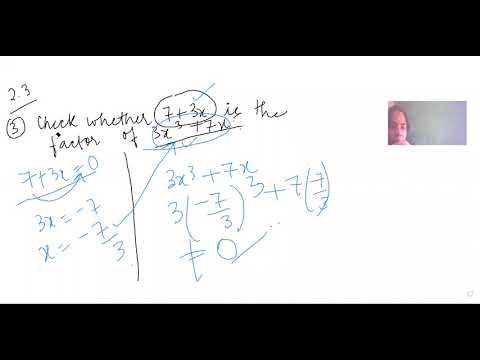 2.3
③ Check whether 7+3x is the
factor of 3x³+7x
7+3x=0
3x=-7
x=-7/3
3x³+7x
3(-7/3)3+7(7/3)
≠0